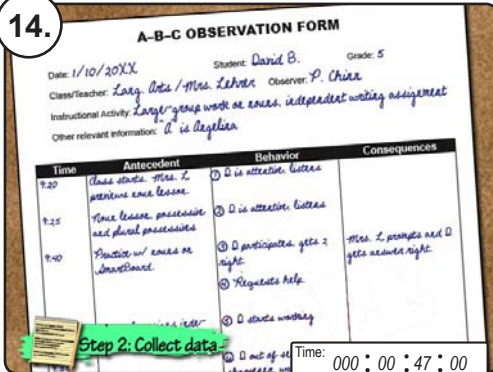 14.
A-B-C OBSERVATION FORM
Date: 1/10/20XX Student: David B. Grade: 5
Class/Teacher: Lang. Arts / Mrs. Lehrer Observer: P. Chinn
Instructional Activity: Large-group work on nouns, independent writing assignment
Other relevant information: "A" is Angelina
Time Antecedent Behavior Consequences
9:20 Class starts. Mrs. L previews noun lesson.
① D is attentive, listens
9:25 Noun lesson, possessive and plural possessives
② D is attentive, listens
9:40 Practice w/ nouns on SmartBoard.
③ D participates, gets 2 right.
Mrs. L prompts and D gets answer right.
④ Requests help
⑤ D starts working
⑥ D out of
Step 2: Collect data
Time: 000 : 00 : 47 : 00